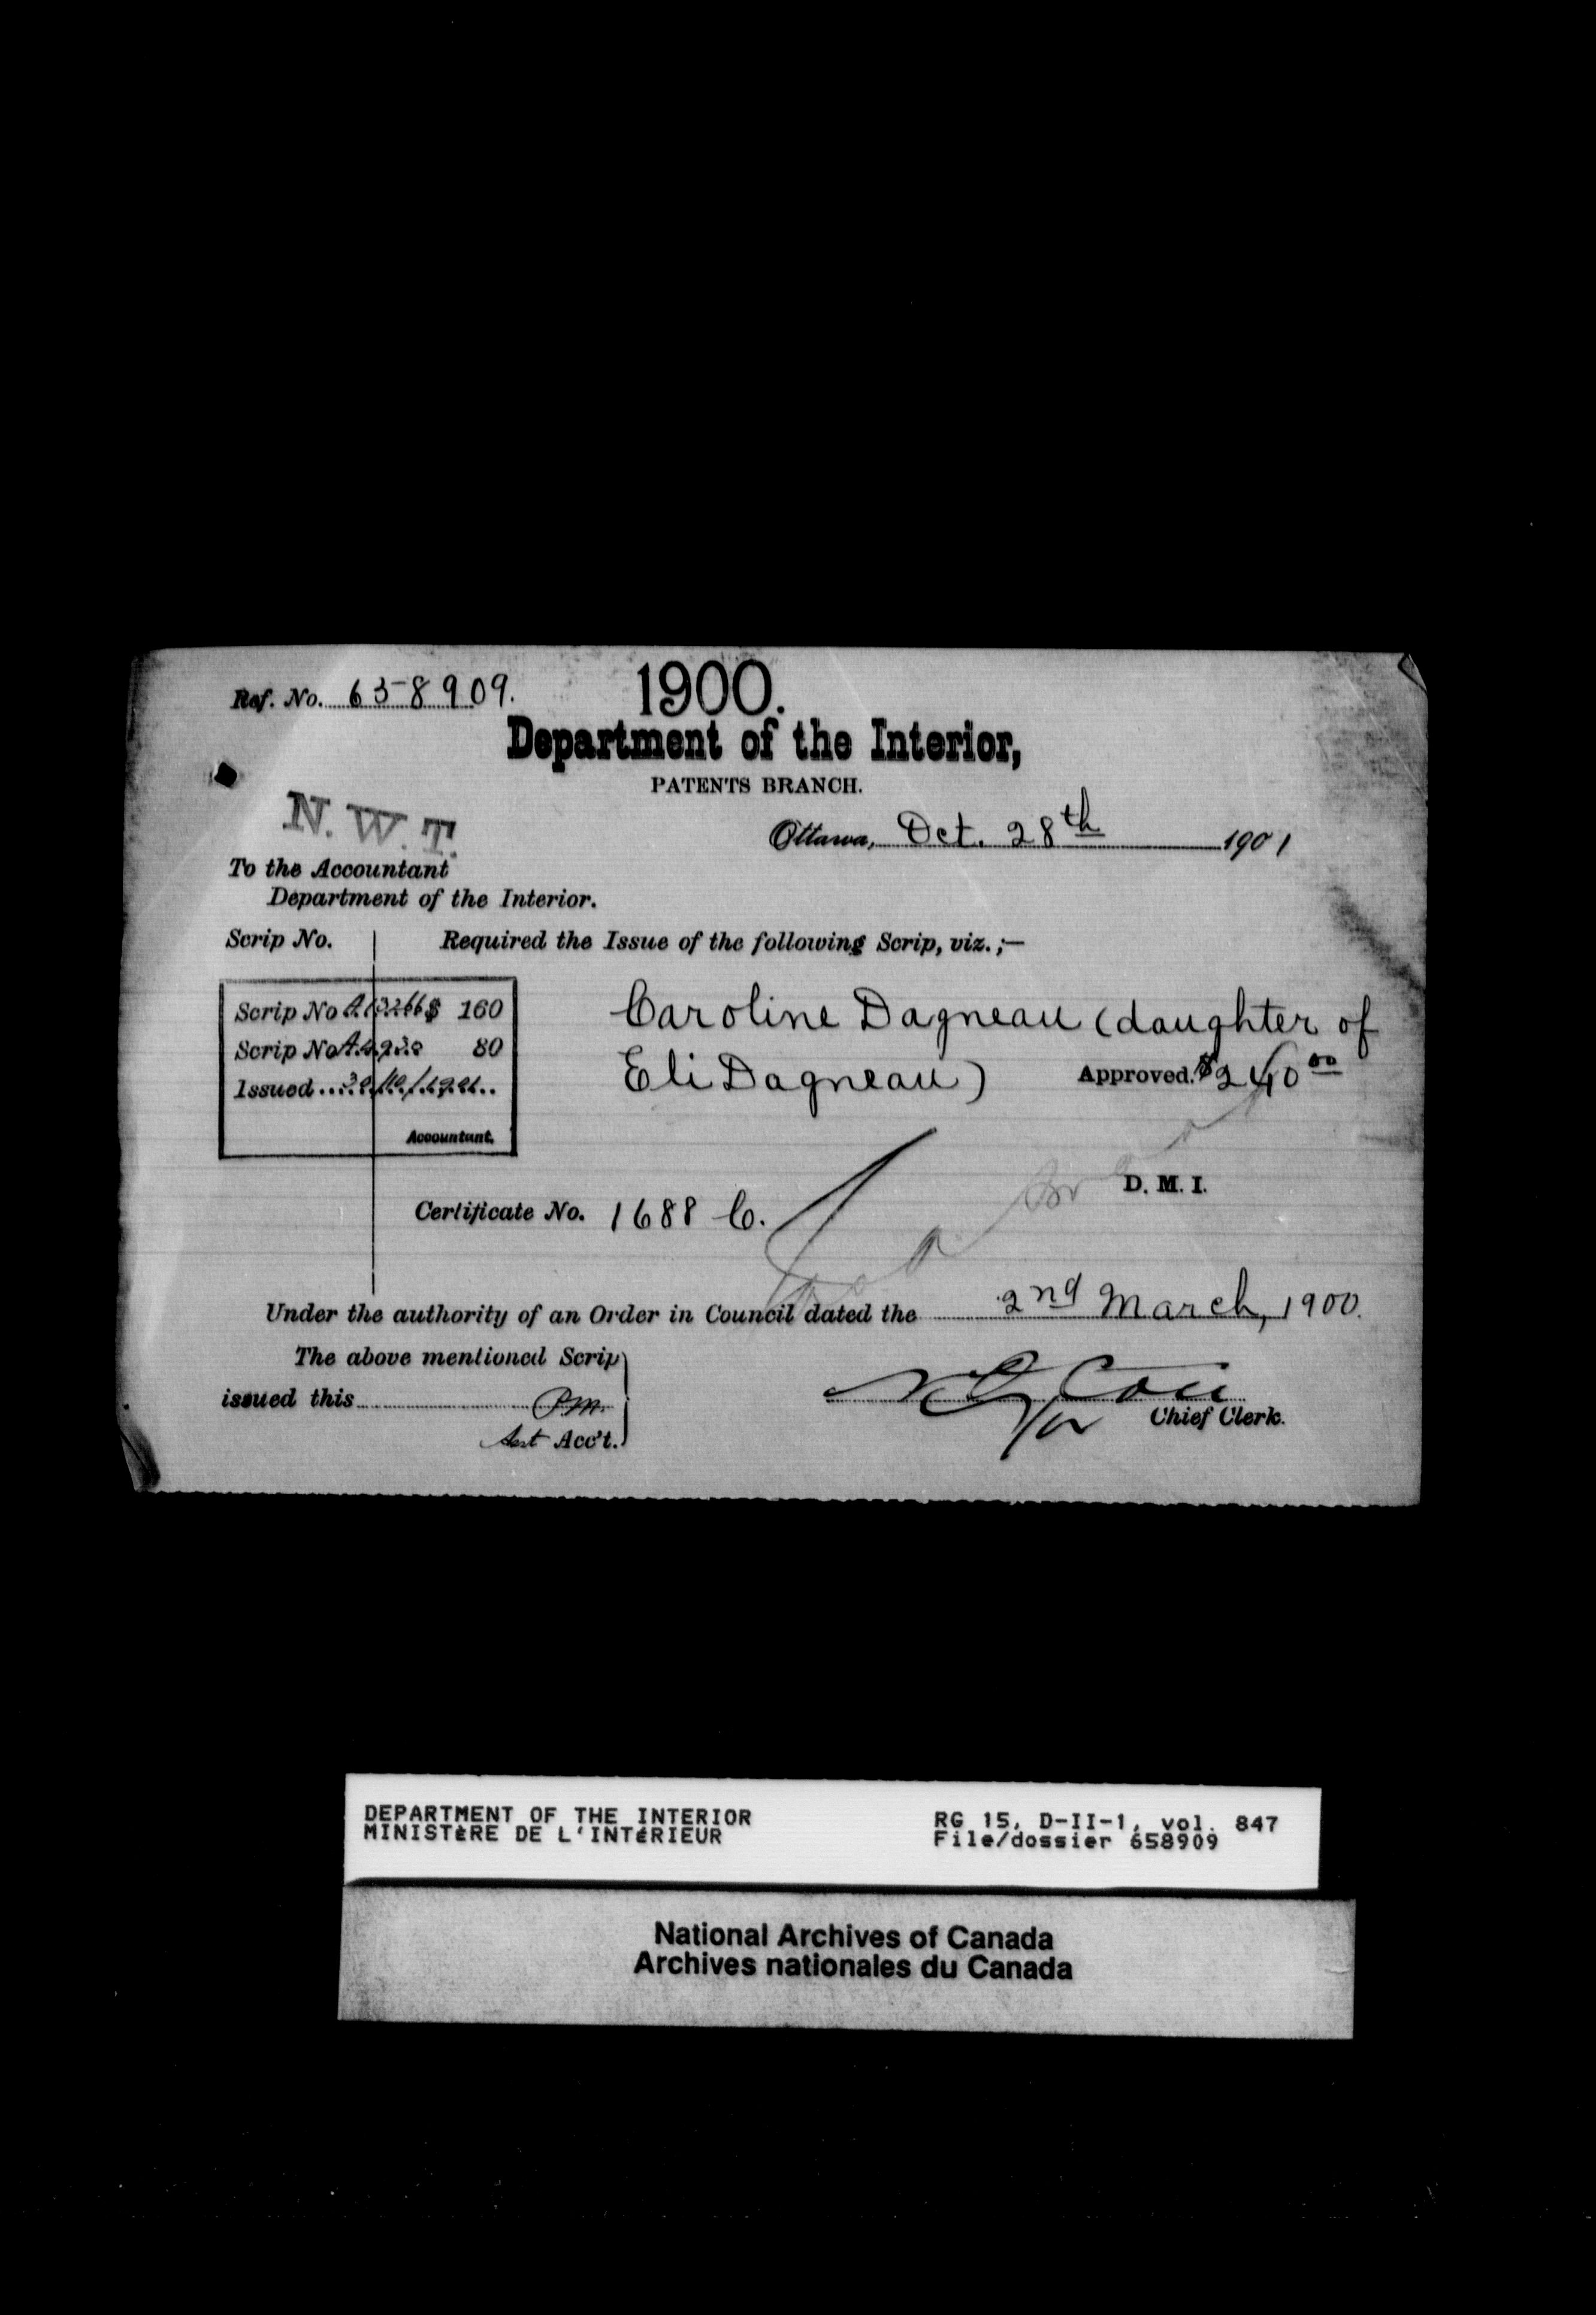 Ref. No. 658909.
1900.
Department of the Interior,
PATENTS BRANCH.
N. W. T.
Ottawa, Oct. 28th 1901
To the Accountant
Department of the Interior.
Scrip No. Required the Issue of the following Scrip, viz.;—
Scrip No A.13266 $ 160
Scrip No A.4930 80
Issued 30/10/1901
Accountant.
Caroline Dagneau (daughter of
Eli Dagneau) Approved. $240 00
D. M. I.
Certificate No. 1688 C.
Under the authority of an Order in Council dated the 2nd March, 1900.
The above mentioned Scrip
issued this P.M.
Asst Acc't.
for Chief Clerk.
DEPARTMENT OF THE INTERIOR RG 15, D-II-1, vol. 847
MINISTèRE DE L'INTéRIEUR File/dossier 658909
National Archives of Canada
Archives nationales du Canada